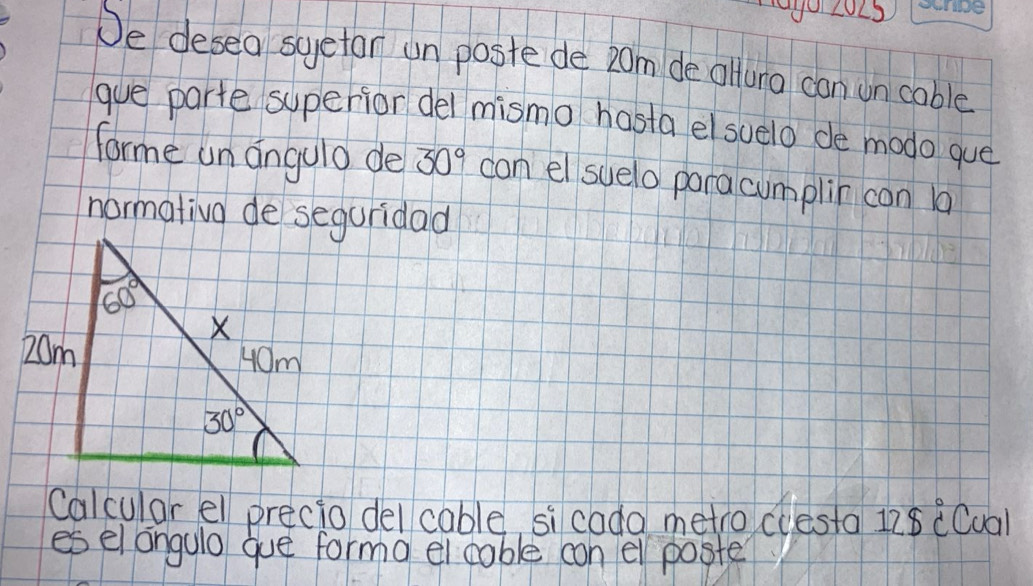 Mayo 2025
Scribe
Se desea sujetar un poste de 20m de altura con un cable
que parte superior del mismo hasta el suelo de modo que
forme un ángulo de 30° con el suelo para cumplir con la
normativa de seguridad
60°
x
20m
40m
30°
Calcular el precio del cable si cada metro cuesta 12$ ¿Cual
es el ángulo que forma el cable con el poste